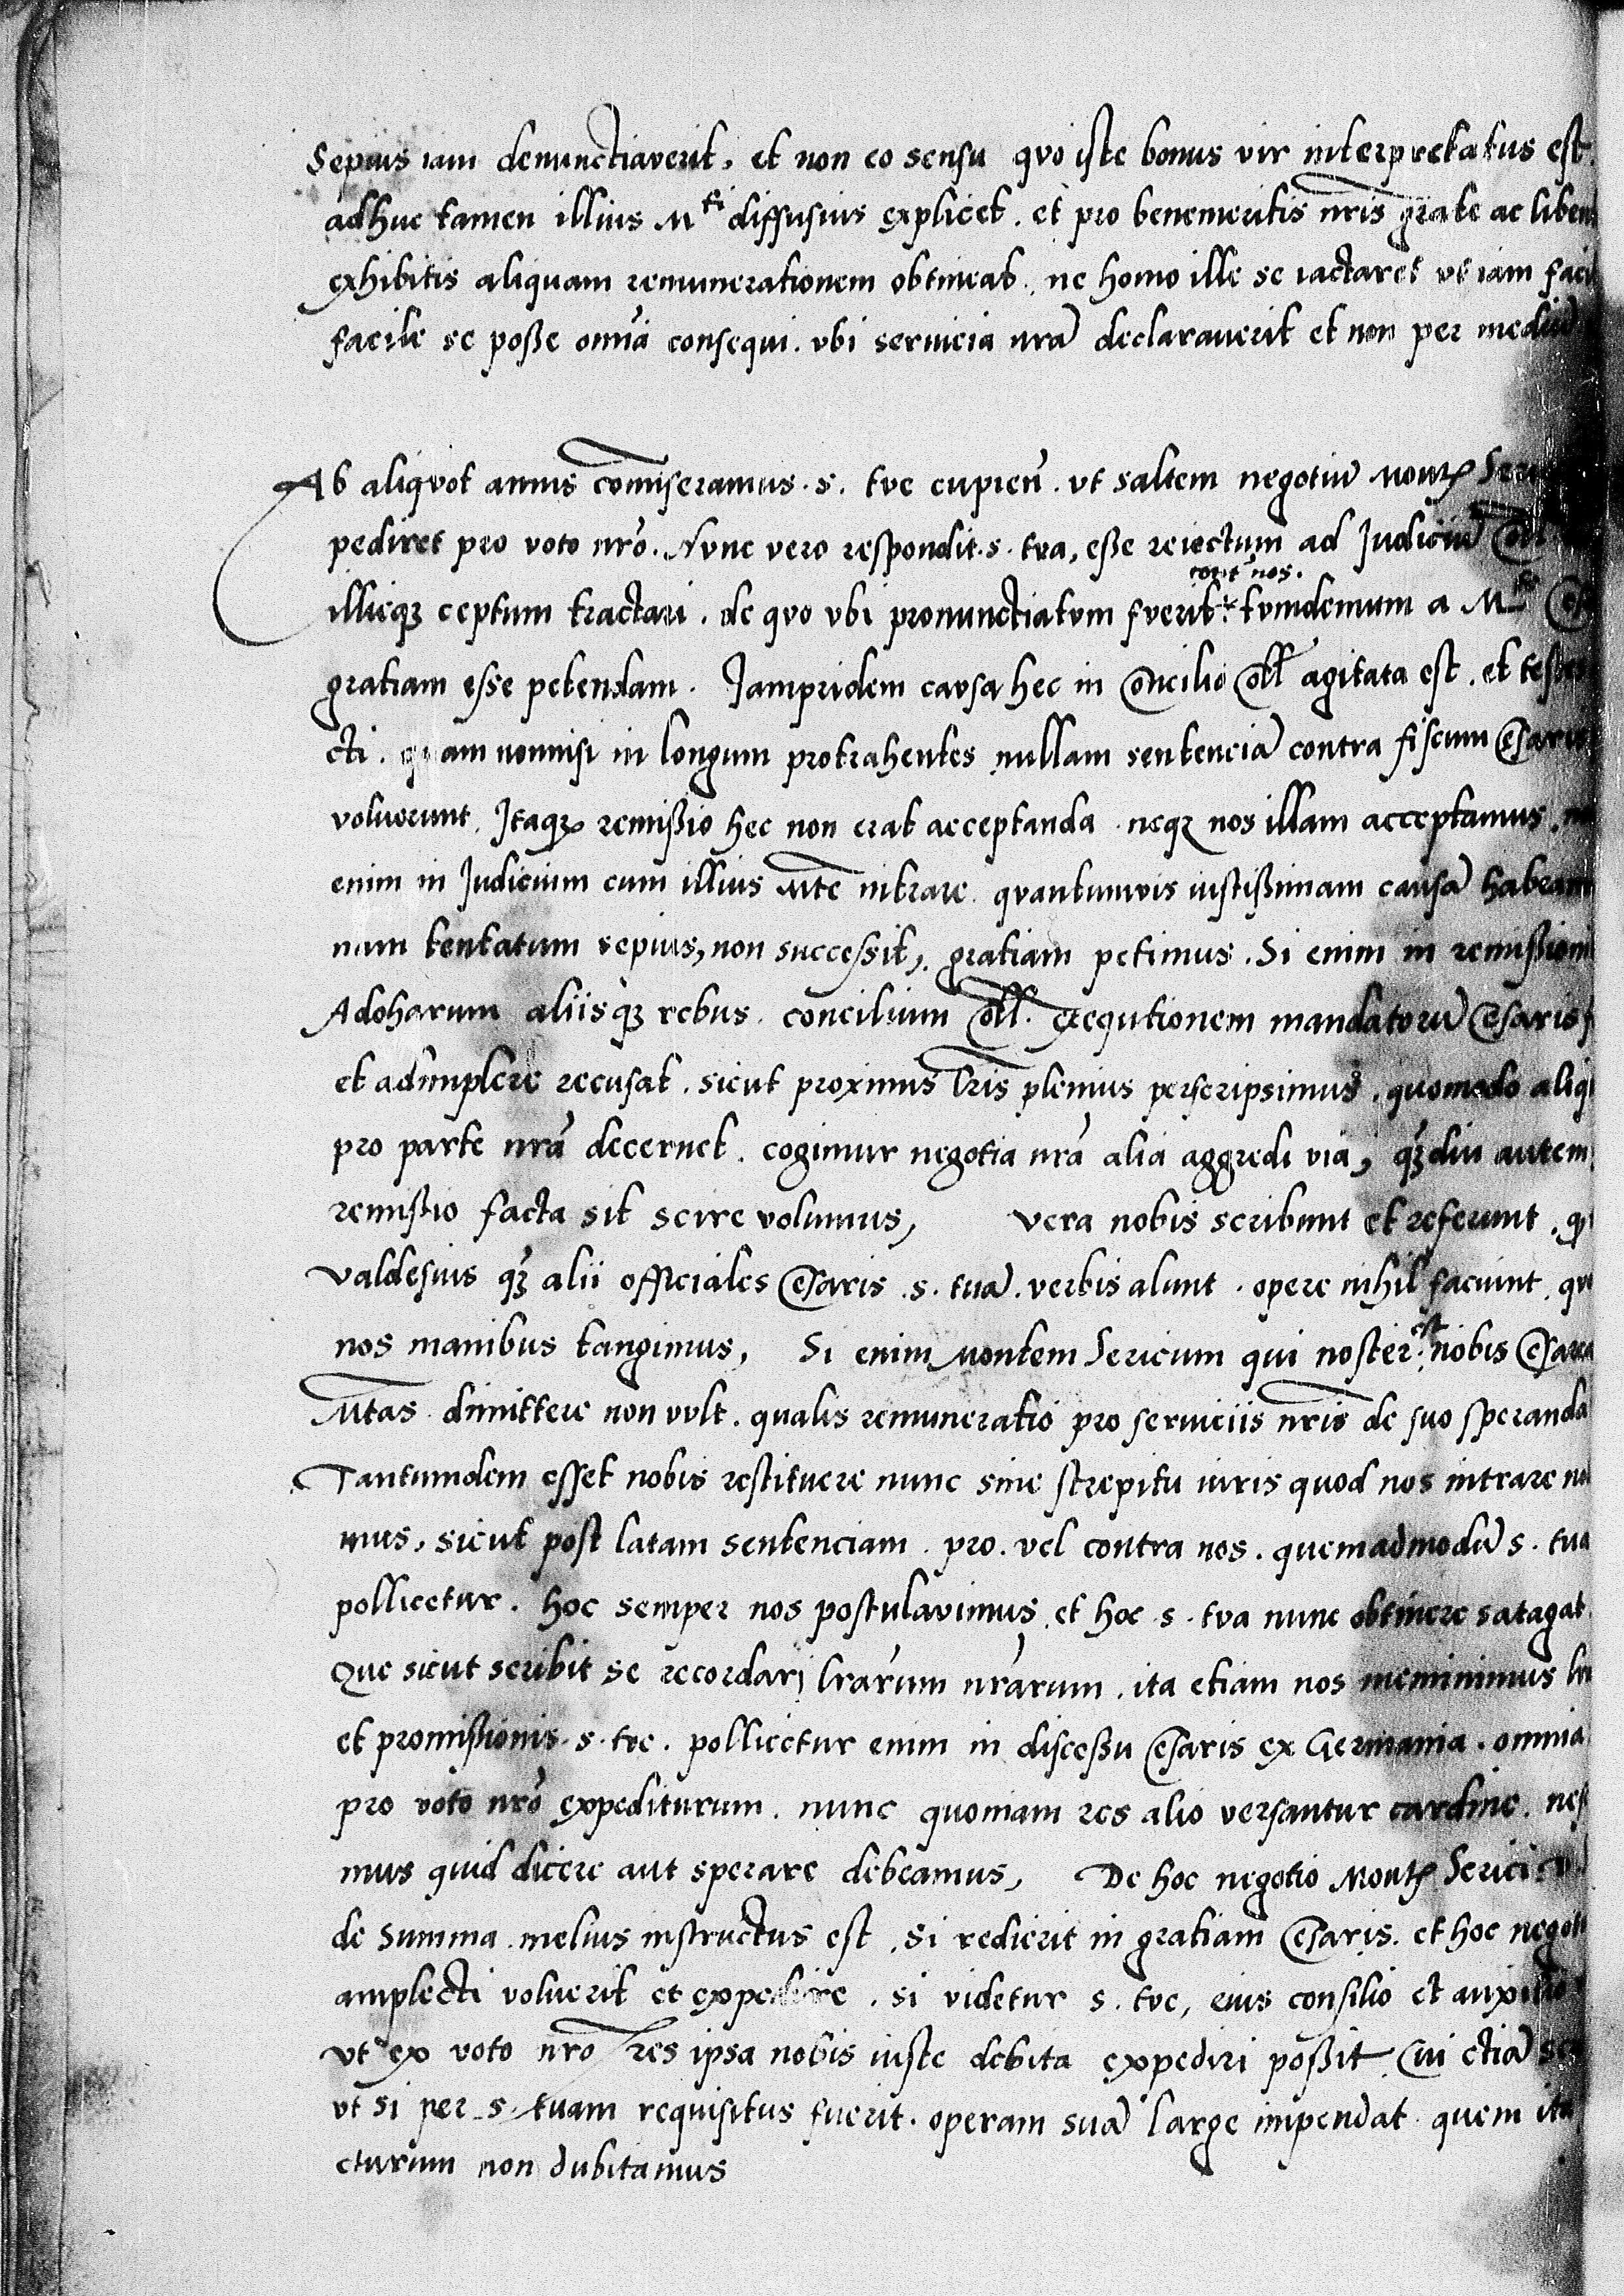 Sepius iam denunctiaverit, et non eo sensu quo iste bonus vir interpretatus est.
adhuc tamen illius M^ti diffusius explicet. et pro benemeritis nr̃is grate ac liben
exhibitis aliquam remunerationem obtineat. ne homo ille se iactaret ut iam faci
facile se posse omĩa consequi. ubi servicia nrã declaraverit et non per mediũ
Ab aliquot annis comiseramus. s. tue cupien̄. ut saltem negotiũ Montꝭ Seri
pediret pro voto nrõ. Nunc vero respondit. s. tua, esse reiectum ad Judiciũ Coll
cont̃ nos.
illicqꝫ ceptum tractari. de quo ubi pronunctiatum fuerit tumdemum a M^te Ces
gratiam esse petendam. Jampridem causa hec in Concilio Coll agitata est. et testes
cti. quam nonnisi in longum protrahentes nullam sentenciã contra fiscum Cesaris
voluerunt. Itaqꝫ remissio hec non erat acceptanda. neqꝫ nos illam acceptamus. no
enim in Judicium cum illius Mte intrare. quantumvis iustissimam causã habeam
nam tentatum sepius, non successit, gratiam petimus. Si enim in remissioni
Adoharum aliisqꝫ rebus. concilium Coll. exequtionem mandatorũ Cesaris
et adimplere recusat. sicut proximis lr̃is plenius perscripsimus. quomodo aliqu
pro parte nrã decernet. cogimur negotia nrã alia aggredi via, qꝫdiu autem
remissio facta sit scire volumus, Vera nobis scribunt et referunt. qꝫ
Valdesius qꝫ alii officiales Cesaris. s. tuã. verbis alunt. opere nihil faciunt. qu
est
nos manibus tangimus, Si enim Montem Sericum qui noster nobis Cesarea
Mtas dimittere non vult. qualis remuneratio pro serviciis nr̃is de suo speranda
Tantumdem esset nobis restituere nunc sine strepitu iuris quod nos intrare no
mus, sicut post latam sentenciam. pro. vel contra nos. quemadmodũ s. tua
pollicetur. hoc semper nos postulavimus. et hoc s. tua nunc obtinere satagat.
Que sicut scribit se recordari lr̃arum nr̃arum. ita etiam nos meminimus lr̃
et promissionis. s. tue. pollicetur enim in discessu Cesaris ex Germania. omnia
pro voto nrõ expediturum. nunc quoniam res alio versantur cardine. nes
mus quid dicere aut sperare debeamus, De hoc negotio Montꝭ Serici
de Summa. melius instructus est. Si redierit in gratiam Cesaris. et hoc negoti
amplecti voluerit et expedire. si videtur s. tue, eius consilio et auxilio
ut ex voto nrõ res ipsa nobis iuste debita expediri possit. Cui etiã scr
ut si per s. tuam requisitus fuerit. operam suã large impendat. quem ita
cturum non dubitamus